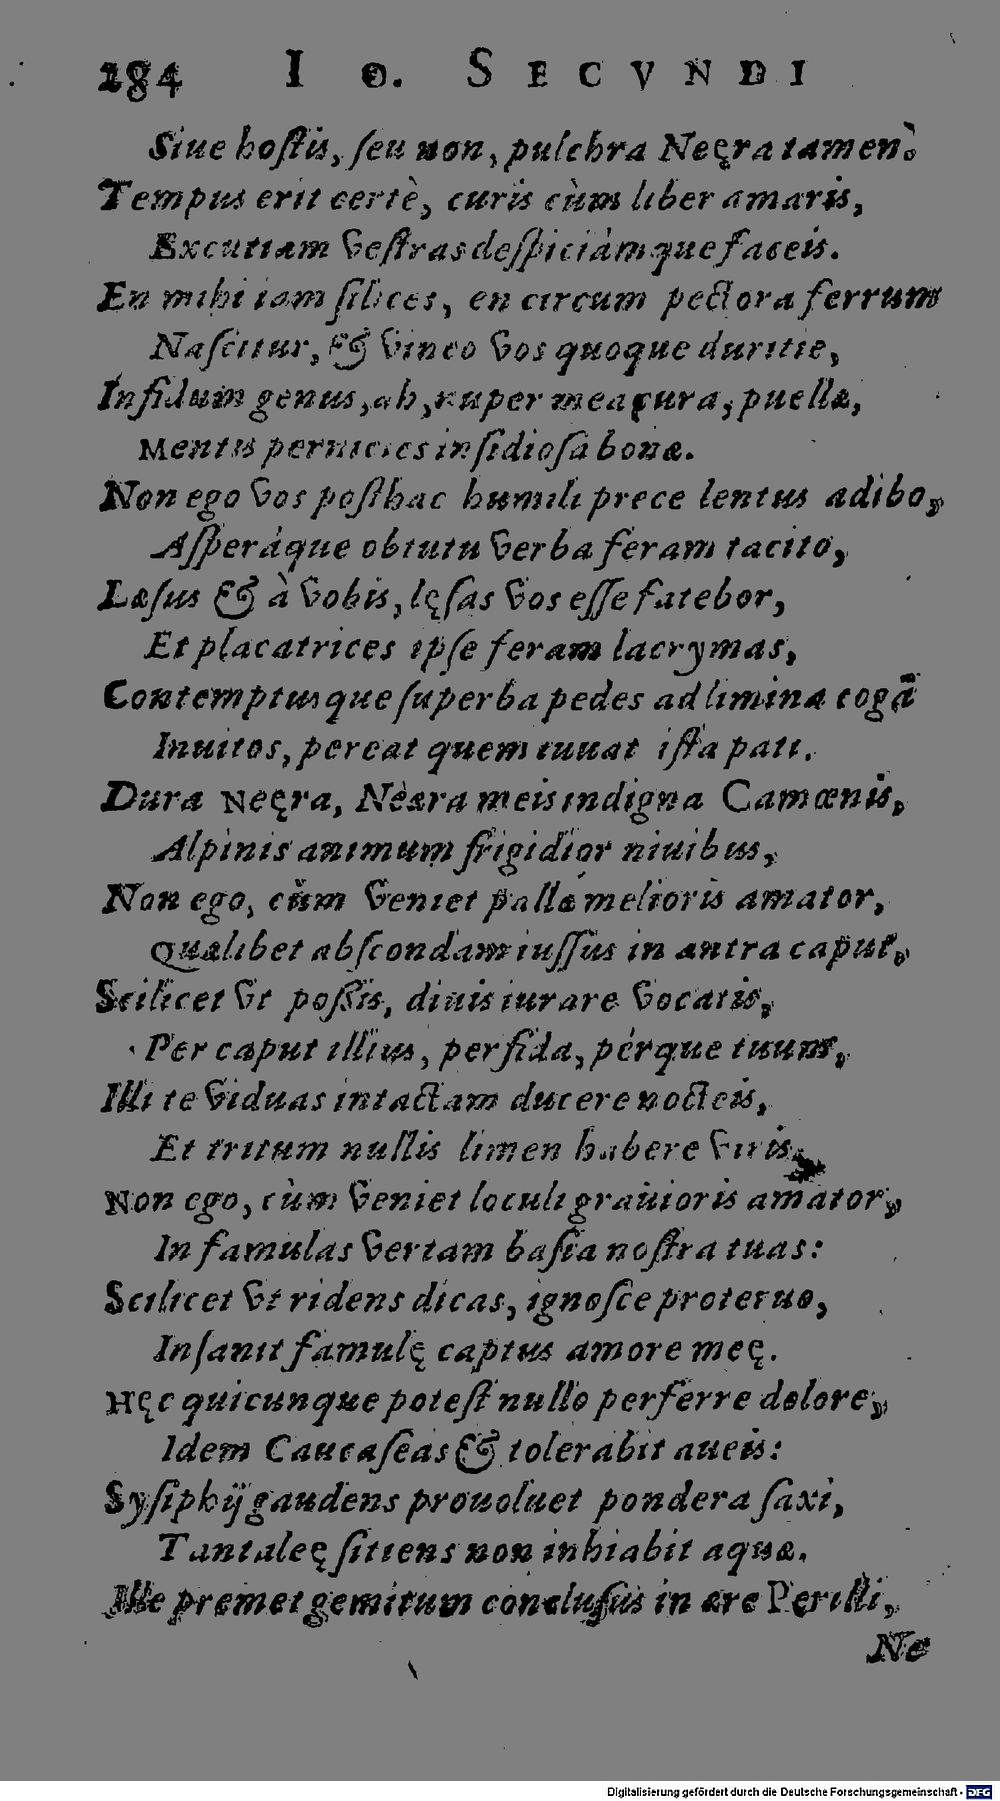 284 I O. SECVNDI
Siue hostis, seu non, pulchra Neęra tamen?
Tempus erit certè, curis cùm liber amaris,
Excutiam vestras despiciámque faceis.
En mihi iam silices, en circum pectora ferrum
Nascitur, & vinco vos quoque duritie,
Infidum genus, ah, nuper mea cura, puellæ,
Mentis pernicies insidiosa bonæ.
Non ego vos posthac humili prece lentus adibo,
Asperáque obtutu verba feram tacito,
Læsus & à vobis, lęsas vos esse fatebor,
Et placatrices ipse feram lacrymas,
Contemptusque superba pedes ad limina cogā
Inuitos, pereat quem iuuat ista pati.
Dura Neęra, Neæra meis indigna Camœnis,
Alpinis animum frigidior niuibus,
Non ego, cùm veniet pallæ melioris amator,
Qualibet abscondam iussus in antra caput,
Scilicet vt possis, diuis iurare vocatis,
Per caput illius, perfida, pérque tuum,
Illi te viduas intactam ducere nocteis,
Et tritum nullis limen habere viris.
Non ego, cùm veniet loculi grauioris amator,
In famulas vertam basia nostra tuas:
Scilicet vt ridens dicas, ignosce proteruo,
Insanit famulę captus amore meę.
Hęc quicunque potest nullo perferre dolore,
Idem Caucaseas & tolerabit aueis:
Sysiphij gaudens prouoluet pondera saxi,
Tantaleę sitiens non inhiabit aquæ.
Ille premet gemitum conclusus in ære Perilli,
Ne
Digitalisierung gefördert durch die Deutsche Forschungsgemeinschaft - DFG